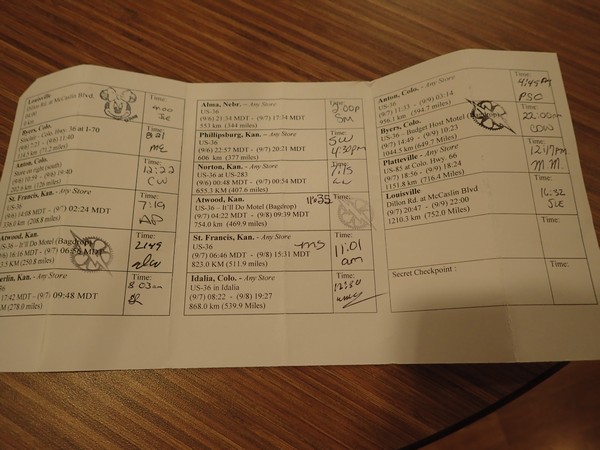 Louisville
Dillon Rd. at McCaslin Blvd.
Time:
4:00
JLE
Byers, Colo.
Colo. Hwy. 36 at I-70
Time:
821
ME
Anton, Colo.
Store on right (south)
Time:
12:22
CW
St. Francis, Kan. - Any Store
(9/6) 14:08 MDT - (9/7) 02:24 MDT
336.0 km (208.8 miles)
Time:
7:19
AP
Atwood, Kan.
US-36 - It'll Do Motel (Bagdrop)
(9/6) 16:16 MDT - (9/7) 06:56 MDT
(250.8 miles)
Time:
Any Store
17:42 MDT - (9/7) 09:48 MDT
(278.0 miles)
Time:
8:03am
Alma, Nebr. - Any Store
US-36
(9/6) 21:34 MDT - (9/7) 17:34 MDT
553 km (344 miles)
Time:
2:00p
SM
Phillipsburg, Kan. - Any Store
US-36
(9/6) 22:57 MDT - (9/7) 20:21 MDT
606 km (377 miles)
Time:
SW
4:30pm
Norton, Kan. - Any Store
US-36 at US-283
(9/7) 00:48 MDT - (9/8) 00:54 MDT
655.3 KM (407.6 miles)
Time:
7:15
Atwood, Kan.
US-36 – It'll Do Motel (Bagdrop)
(9/7) 04:22 MDT - (9/8) 09:39 MDT
754.0 km (469.9 miles)
Time:
St. Francis, Kan. - Any Store
US-36
(9/7) 06:46 MDT - (9/8) 15:31 MDT
823.0 KM (511.9 miles)
MS
Time:
11:01
am
Idalia, Colo. - Any Store
US-36 in Idalia
(9/7) 08:22 - (9/8) 19:27
868.0 km (539.9 Miles)
Time:
12:50
Anton, Colo. - Any Store
US-36
(9/7) 11:33 - (9/9) 03:14
956.1 km (594.7 miles)
Time:
4:49PM
PSO
Byers, Colo.
US-36 - Budget Host Motel (Bagdrop)
(9/7) 14:49 - (9/9) 10:23
1044.5 km (649.7 Miles)
Time:
22:00pm
CDW
Platteville - Any Store
US-85 at Colo. Hwy. 66
(9/7) 18:56 - (9/9) 18:24
1151.8 km (716.4 Miles)
Time:
12:17pm
M.M.
Louisville
Dillon Rd. at McCaslin Blvd
(9/7) 20:47 - (9/9) 22:00
1210.3 km (752.0 Miles)
Time:
16:32
JLE
Time:
Secret Checkpoint :
Time: